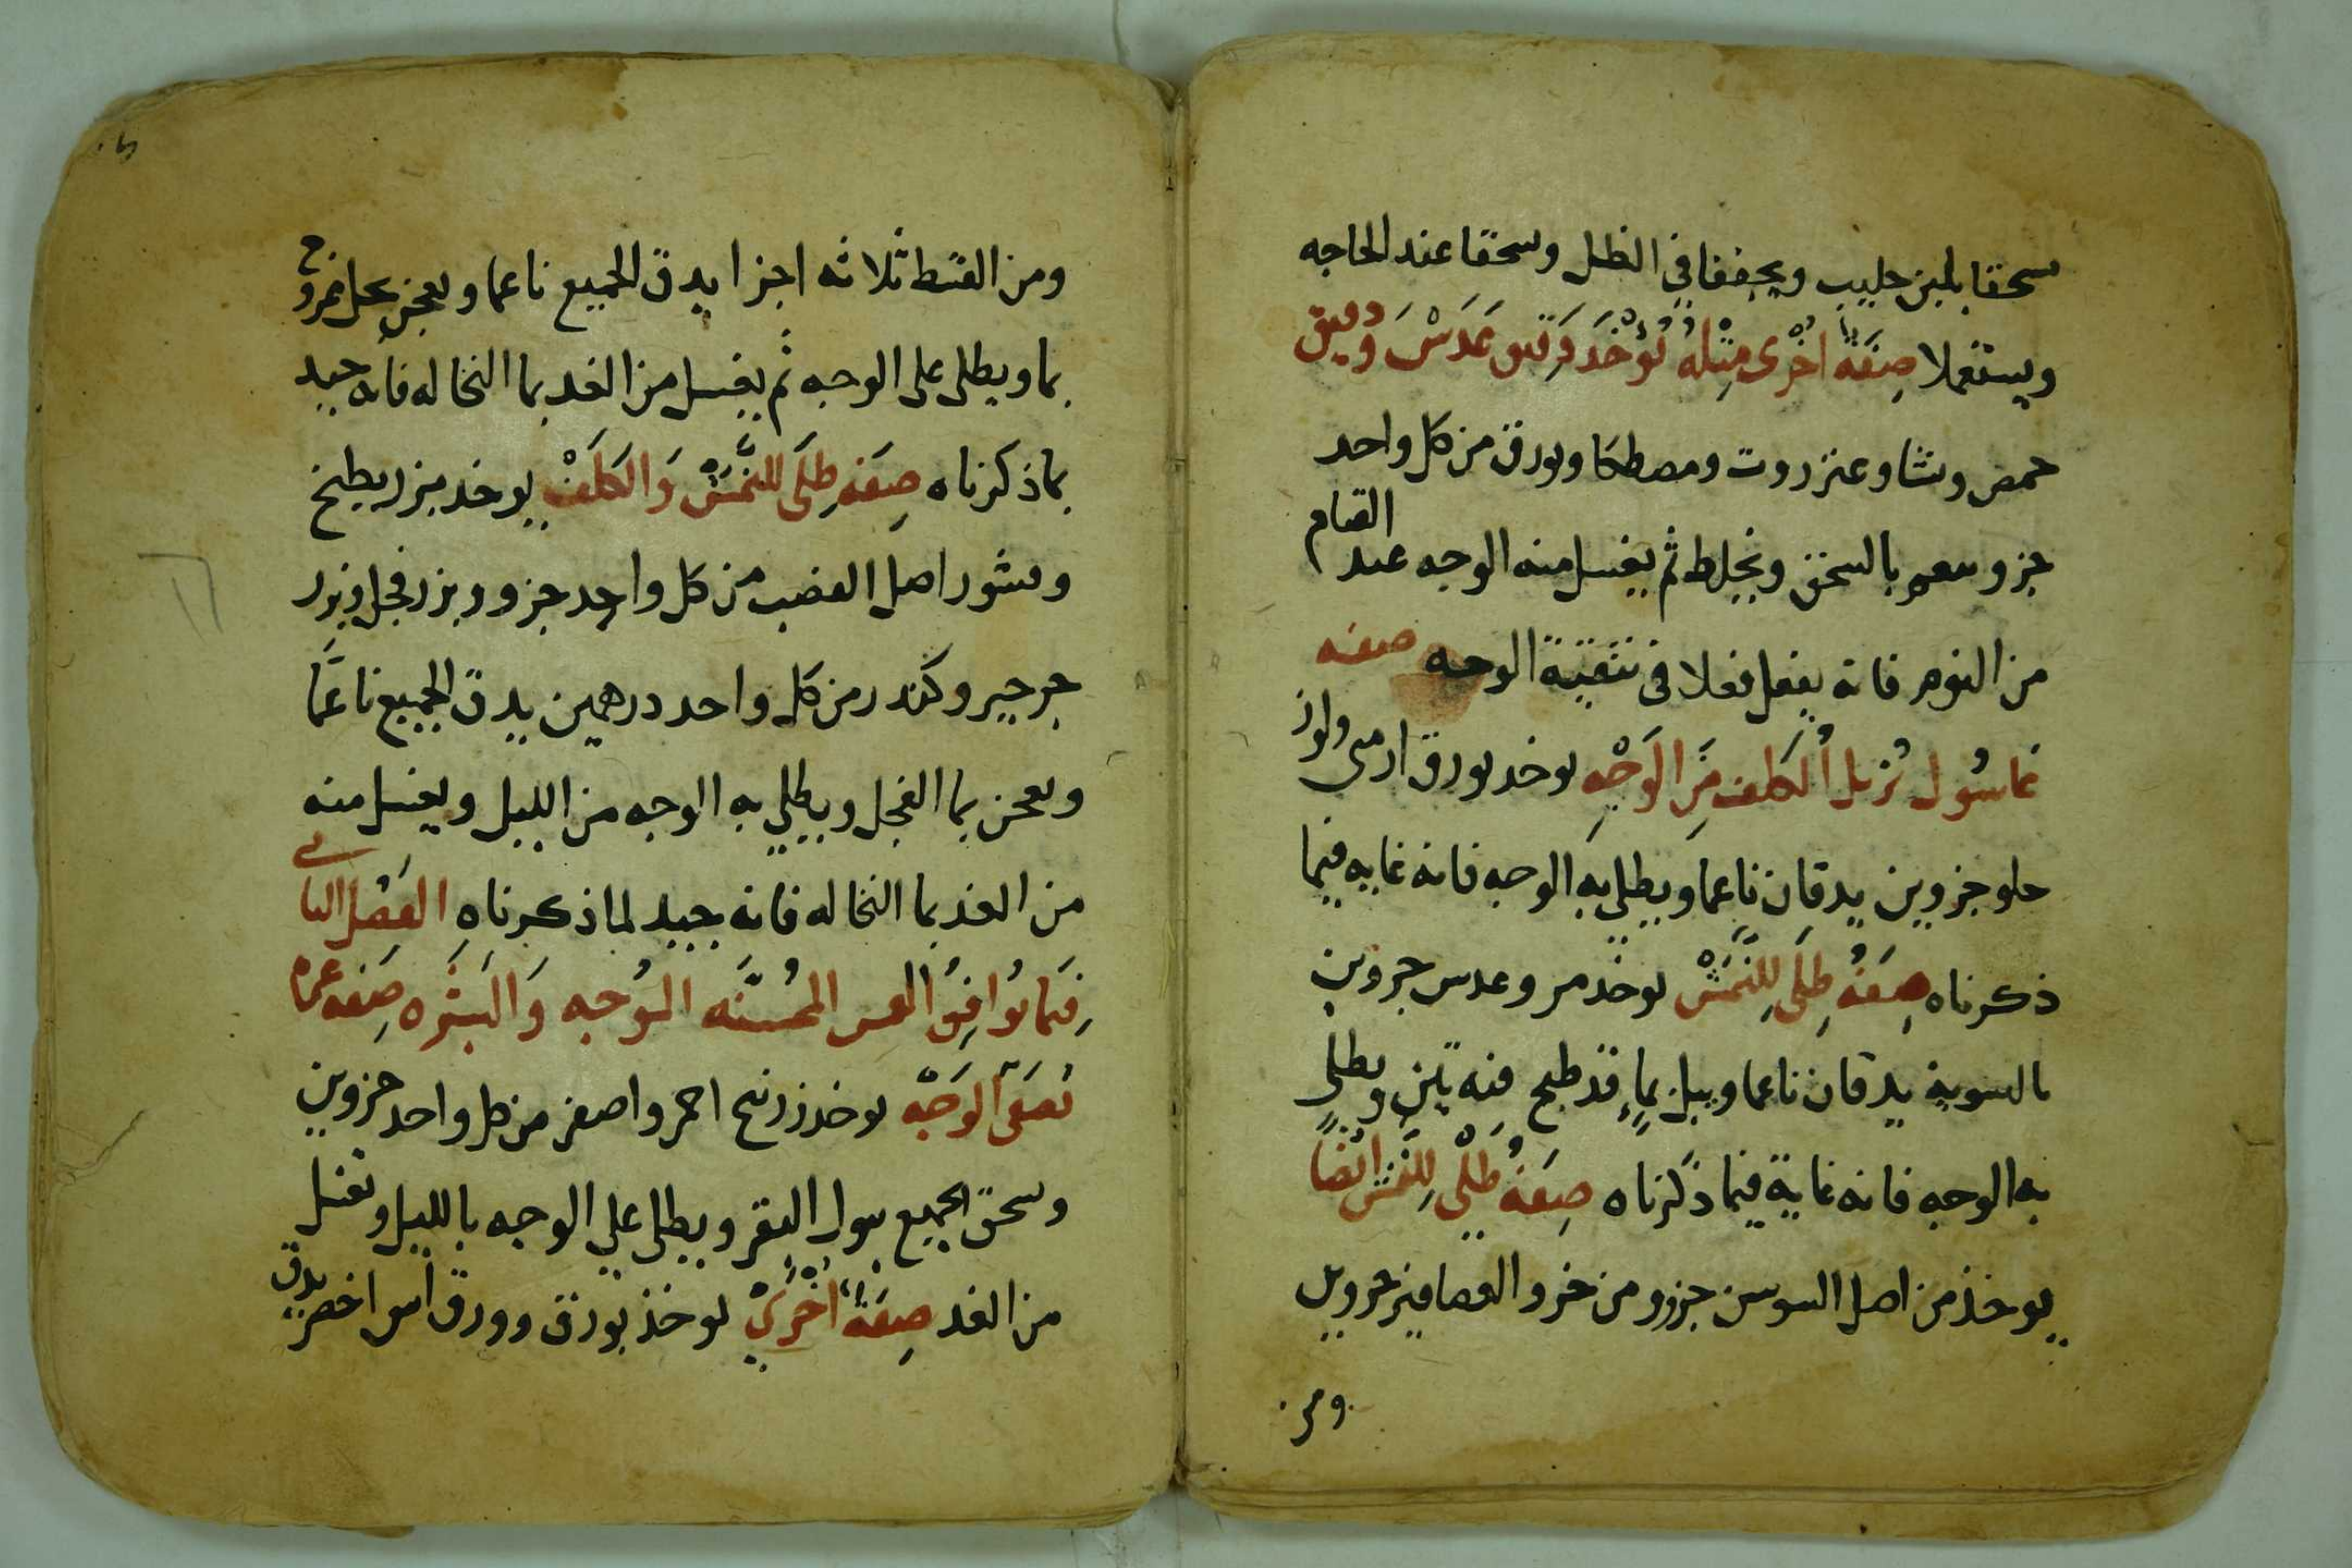 سحقا بلبن حليب ويجففا في الظل وسحقا عند الحاجه
ويستعملا صِفَة اخْرى مِثله تُوْخَذ دَقيق عَدَسْ وَدقيق
حمص ونشا وعنزروت ومصطكا وبورق من كل واحد
جزو بالسحق ويخلط ثم يغسل منه الوجه عند القيام
من النوم فانه يفعل فعلا في تنقية الوجه صفه
غاسُول تُزيل الكلف مِنَ الوَجْهِ يوخد بورق ارمني ولوز
حلو جزوين يدقان ناعما ويطلي به الوجه فانه غايه فيما
ذكرناه صِفَةُ طِلَى لِلنَّمَشْ يوخذ مر وعدس جزوين
بالسوية يدقان ناعما ويبل بماء قد طبخ فيه تين ويطلي
به الوجه فانه غاية فيما ذكرناه صِفَةُ طلْى لِلنَّمَش ايْضًا
يوخذ من اصل السوسن جزو ومن خرو العصافير جزوين
ومن
ومن القسط ثلاثه اجزا يدق الجميع ناعما ويعجن بخل ممزوج
بما ويطلى على الوجه ثم يغسل من الغد بما النخاله فانه جيد
بما ذكرناه صِفَه طِلَى لِلنَّمَشْ وَالكَلَفْ يوخد بزر بطيخ
وقشور اصل القصب من كل واحد جزو وبزر فجل وبزر
جرجير وكندر من كل واحد درهمين يدق الجميع ناعمًا
ويعجن بما الفجل ويطلي به الوجه من الليل ويغسل منه
من الغد بما النخاله فانه جيد لما ذكرناه الفَصْل الثاني
فيمَا يُوافِقُ المحسنَه الوُجه وَالبَشَره صِفَه غمره
تُصَفى الوَجْه يوخد زرنيخ احمر واصفر من كل واحد جزوين
وسحق الجميع ببول البقر ويطلى علي الوجه بالليل وتغسل
من الغد صِفَة اخْرَىْ يوخذ بورق وورق اس اخضر يدق